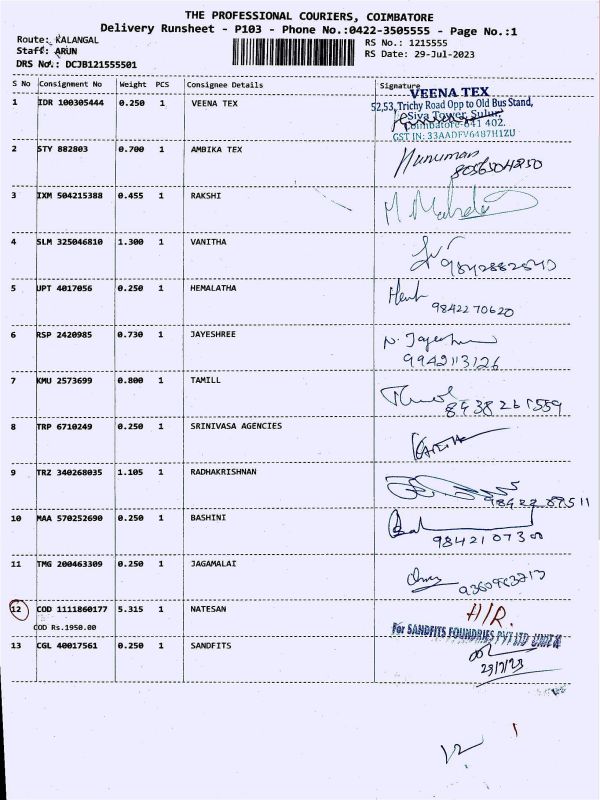 THE PROFESSIONAL COURIERS, COIMBATORE
Delivery Runsheet - P103 - Phone No.:0422-3505555 - Page No.:1
Route: KALANGAL
RS No.: 1215555
Staff: ARUN
RS Date: 29-Jul-2023
DRS No.: DCJB121555501
S No Consignment No Weight PCS Consignee Details Signature
VEENA TEX
1 IDR 100305444 0.250 1 VEENA TEX
52,53, Trichy Road Opp to Old Bus Stand,
Siva Tower, Sulur,
Coimbatore-641 402.
GST IN: 33AADFV6487H1ZU
2 STY 882803 0.700 1 AMBIKA TEX
Hanuman
8056504250
3 IXM 504215388 0.455 1 RAKSHI
4 SLM 325046810 1.300 1 VANITHA
5 UPT 4017056 0.250 1 HEMALATHA
9842270620
6 RSP 2420985 0.730 1 JAYESHREE
9942113126
7 KMU 2573699 0.800 1 TAMILL
8438261559
8 TRP 6710249 0.250 1 SRINIVASA AGENCIES
9 TRZ 340268035 1.105 1 RADHAKRISHNAN
10 MAA 570252690 0.250 1 BASHINI
11 TMG 200463309 0.250 1 JAGAMALAI
12 COD 1111860177 5.315 1 NATESAN
H/R.
COD Rs.1950.00
For SANDFITS FOUNDRIES PVT LTD UNIT
13 CGL 40017561 0.250 1 SANDFITS